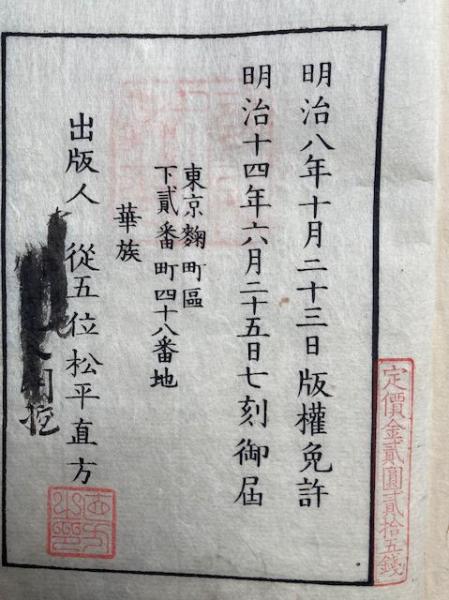 明治八年十月二十三日版權免許
明治十四年六月二十五日七刻御届
東京麴町區
下貳番町四十八番地
華族
出版人 從五位松平直方
定價金貳圓貳拾五錢